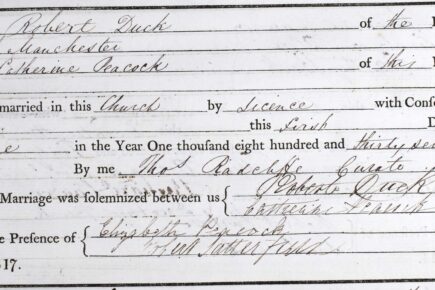 Robert Duck of the
Manchester
Catherine Peacock of this
married in this Church by Licence with Conse
this First D
e in the Year One thousand eight hundred and thirty se
By me Thos Radcliffe Curate
Marriage was solemnized between us { Robert Duck
Catherine Peacock
e Presence of { Elizabeth Peacock
17.